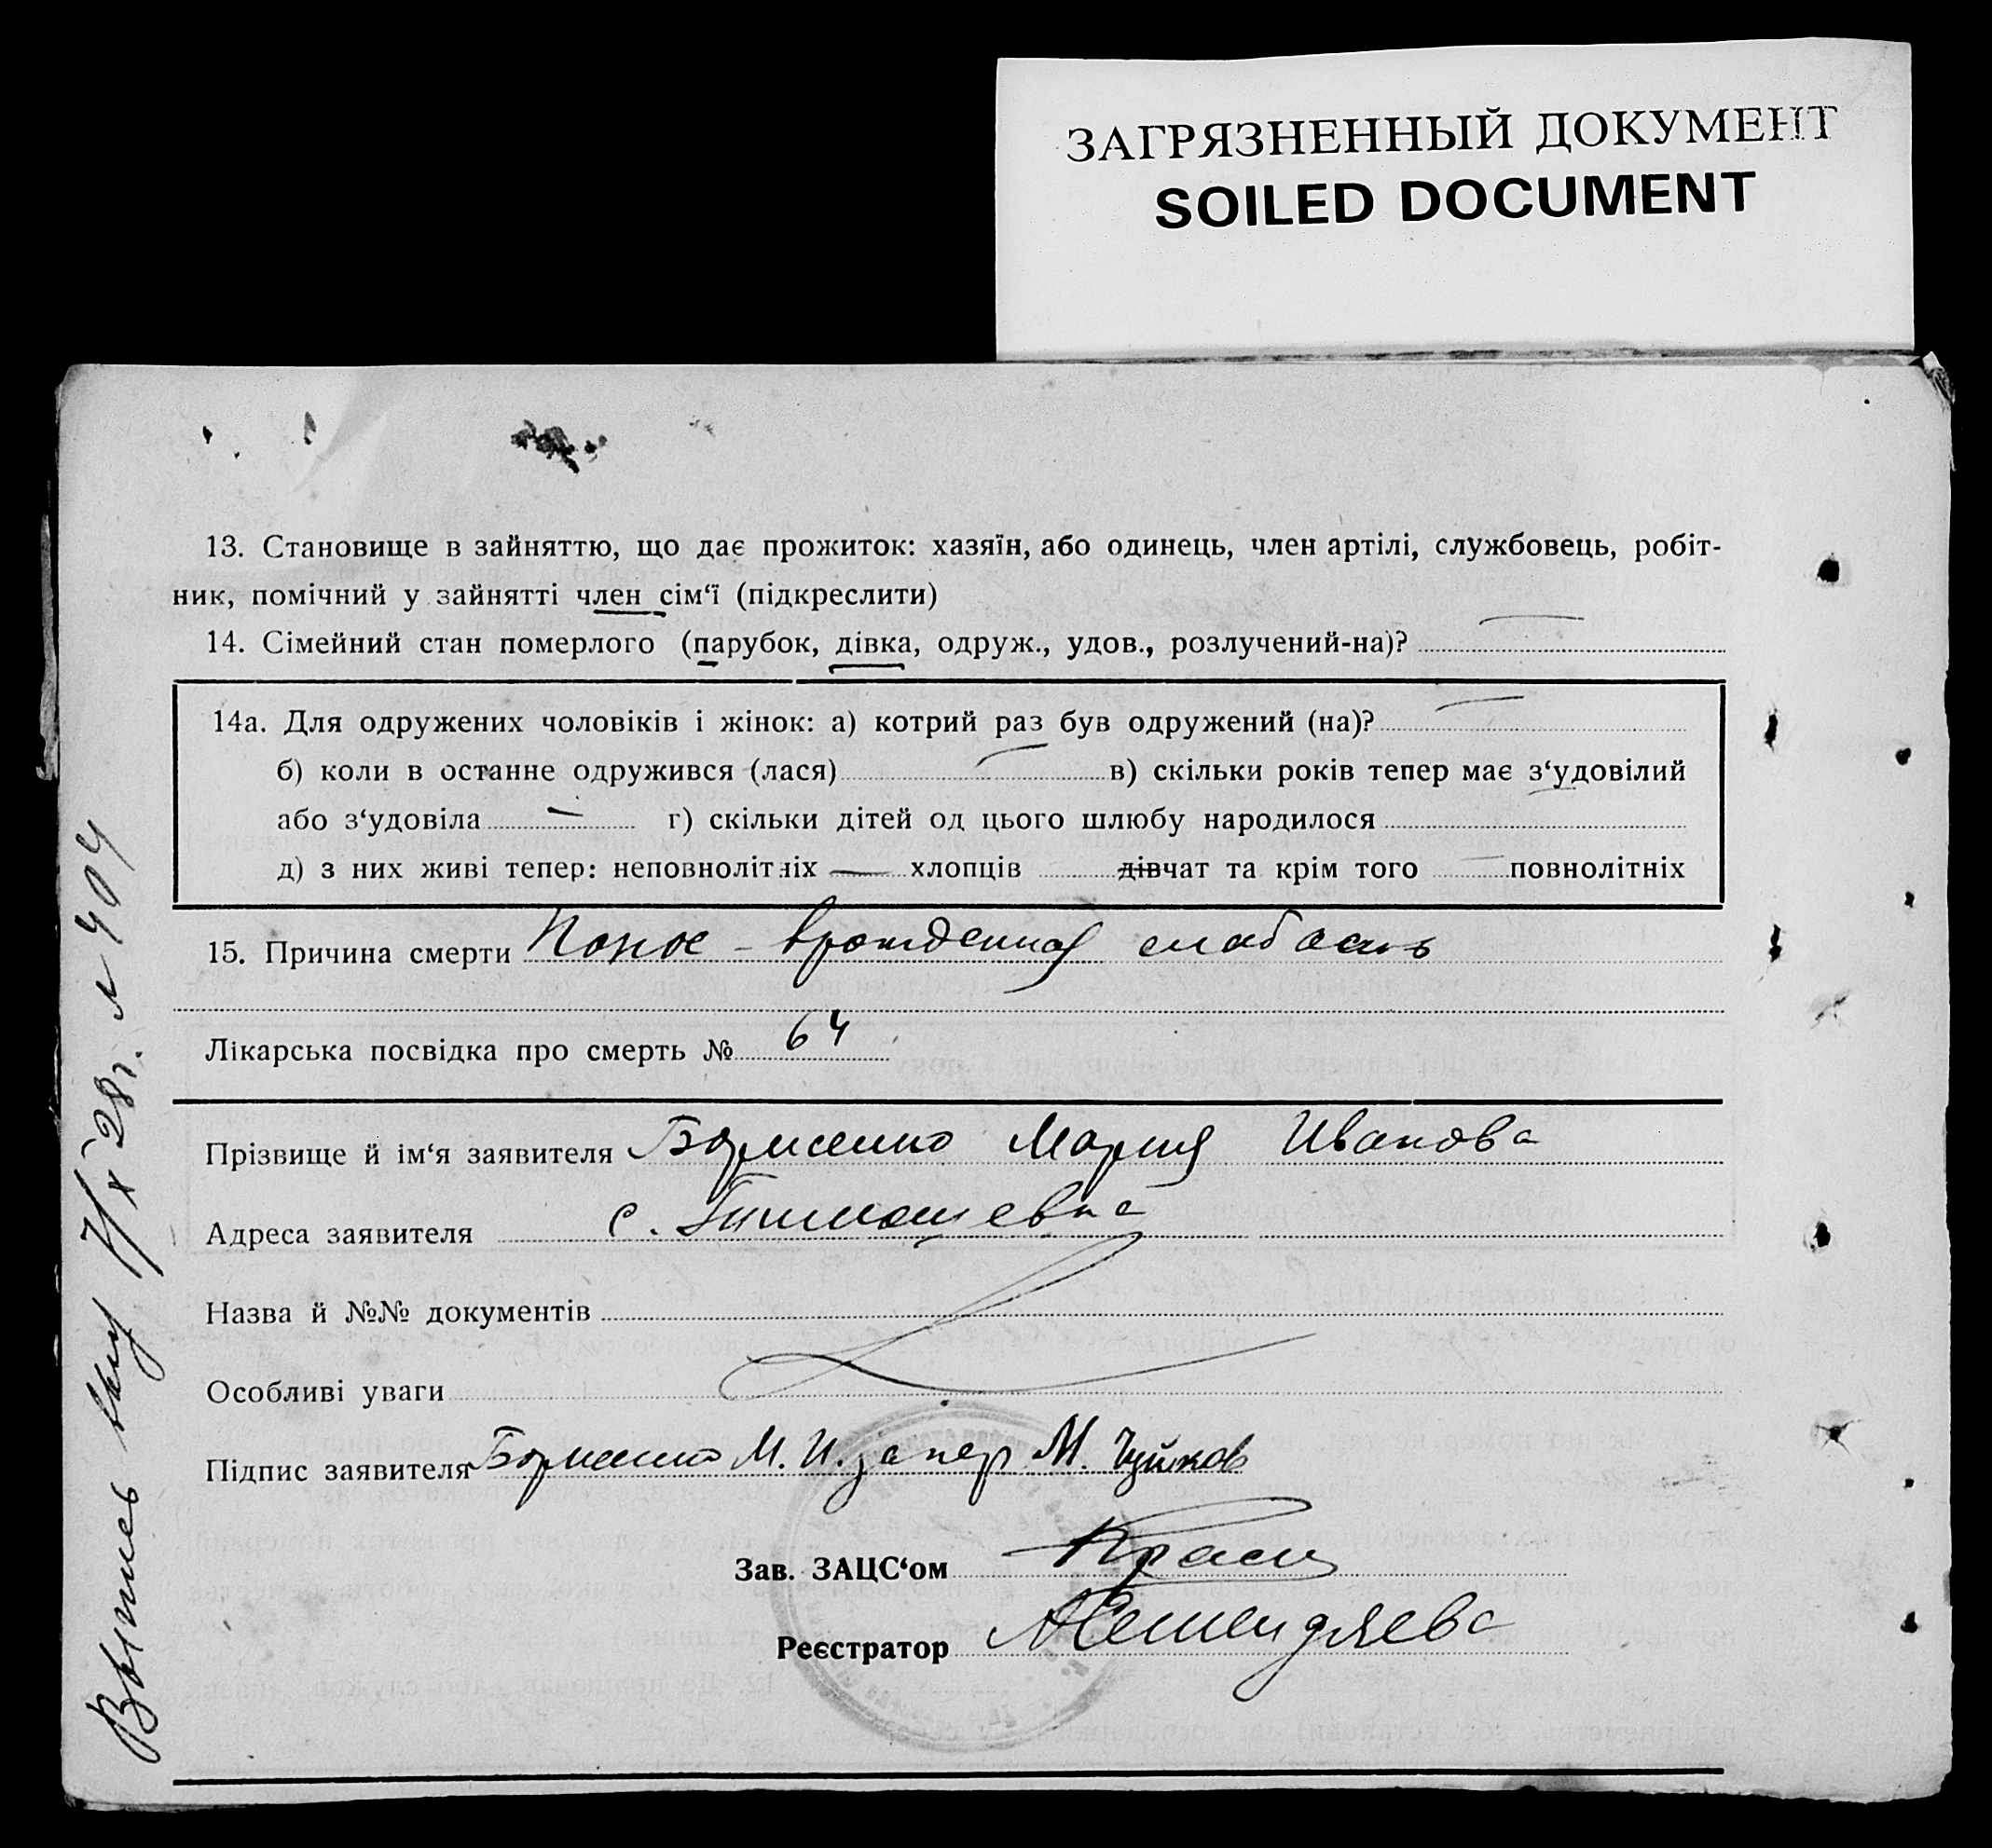 ЗАГРЯЗНЕННЫЙ ДОКУМЕНТ
SOILED DOCUMENT
13. Становище в зайняттю, що дає прожиток: хазяїн, або одинець, член артілі, службовець, робіт-
ник, помічний у зайнятті член сім‘ї (підкреслити)
14. Сімейний стан померлого (парубок, дівка, одруж., удов., розлучений-на)?
14а. Для одружених чоловіків і жінок: а) котрий раз був одружений (на)?
б) коли в останне одружився (лася) в) скільки років тепер має з‘удовілий
або з‘удовіла — г) скільки дітей од цього шлюбу народилося
д) з них живі тепер: неповнолітніх — хлопців дівчат та крім того повнолітніх
15. Причина смерти Понос - врожденная слабость
Лікарська посвідка про смерть № 64
Прізвище й ім‘я заявителя Мария Иванова
Адреса заявителя с. Тимошевка
Назва й №№ документів
Особливі уваги
Підпис заявителя М. И. за нер М. Чуйков
Зав. ЗАЦС‘ом
Реєстратор
Выпись 7/X 28г. 404